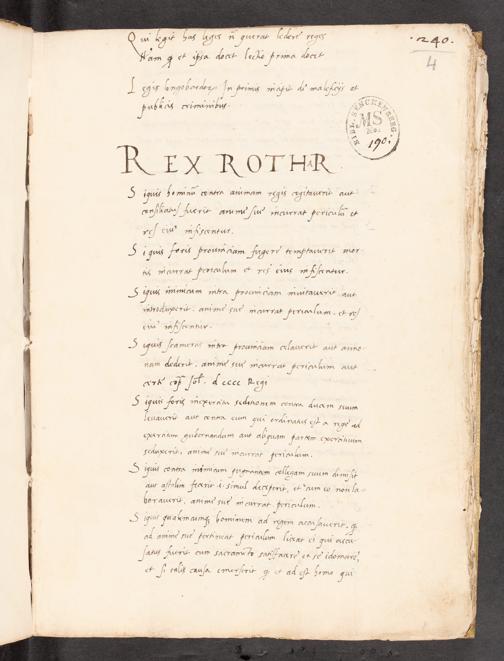 ·240·
4
Qui legit has leges nō querat ledere reges
Nam q et ipsa docet lectio prima docet
Legis longobardor In primis incipit de maleficijs et
publicis criminibus.
BIBL. SENCKENBERG.
MS
190.
REX ROTHAR.
Siquis hominū contra animam regis cogitaverit aut
consiliatus fuerit anime sue incurrat periculū et
res eius infiscentur.
Siquis foris provinciam fugere temptaverit mor
tis incurrat periculum et res eius infiscentur.
Siquis inimicum intra provinciam invitaverit aut
introduxerit. anime sue incurrat periculum. et res
eius infiscentur.
Siquis scameras intra provinciam celaverit aut anno
nam dederit. anime sue incurrat periculum aut
certe cōp sol. dcccc Regi
Siquis foris in exercitu seditionem contra ducem suum
levaverit aut contra eum qui ordinatus est a rege ad
exercitum gubernandum aut aliquam partem exercituum
seduxerit. anime sue incurrat periculum.
Siquis contra inimicum pugnantem collegam suum dimisit
aut astalin fecerit i. simul deceperit, et cum eo non la-
boraverit. anime sue incurrat periculum.
Siquis qualemcunq hominem ad regem accusaverit. q
ad anime sue pertineat periculum liceat ei qui accu
satus fuerit cum sacramēto satisfacere et se idoniare,
et si talis causa emerserit q et ad est homo qui